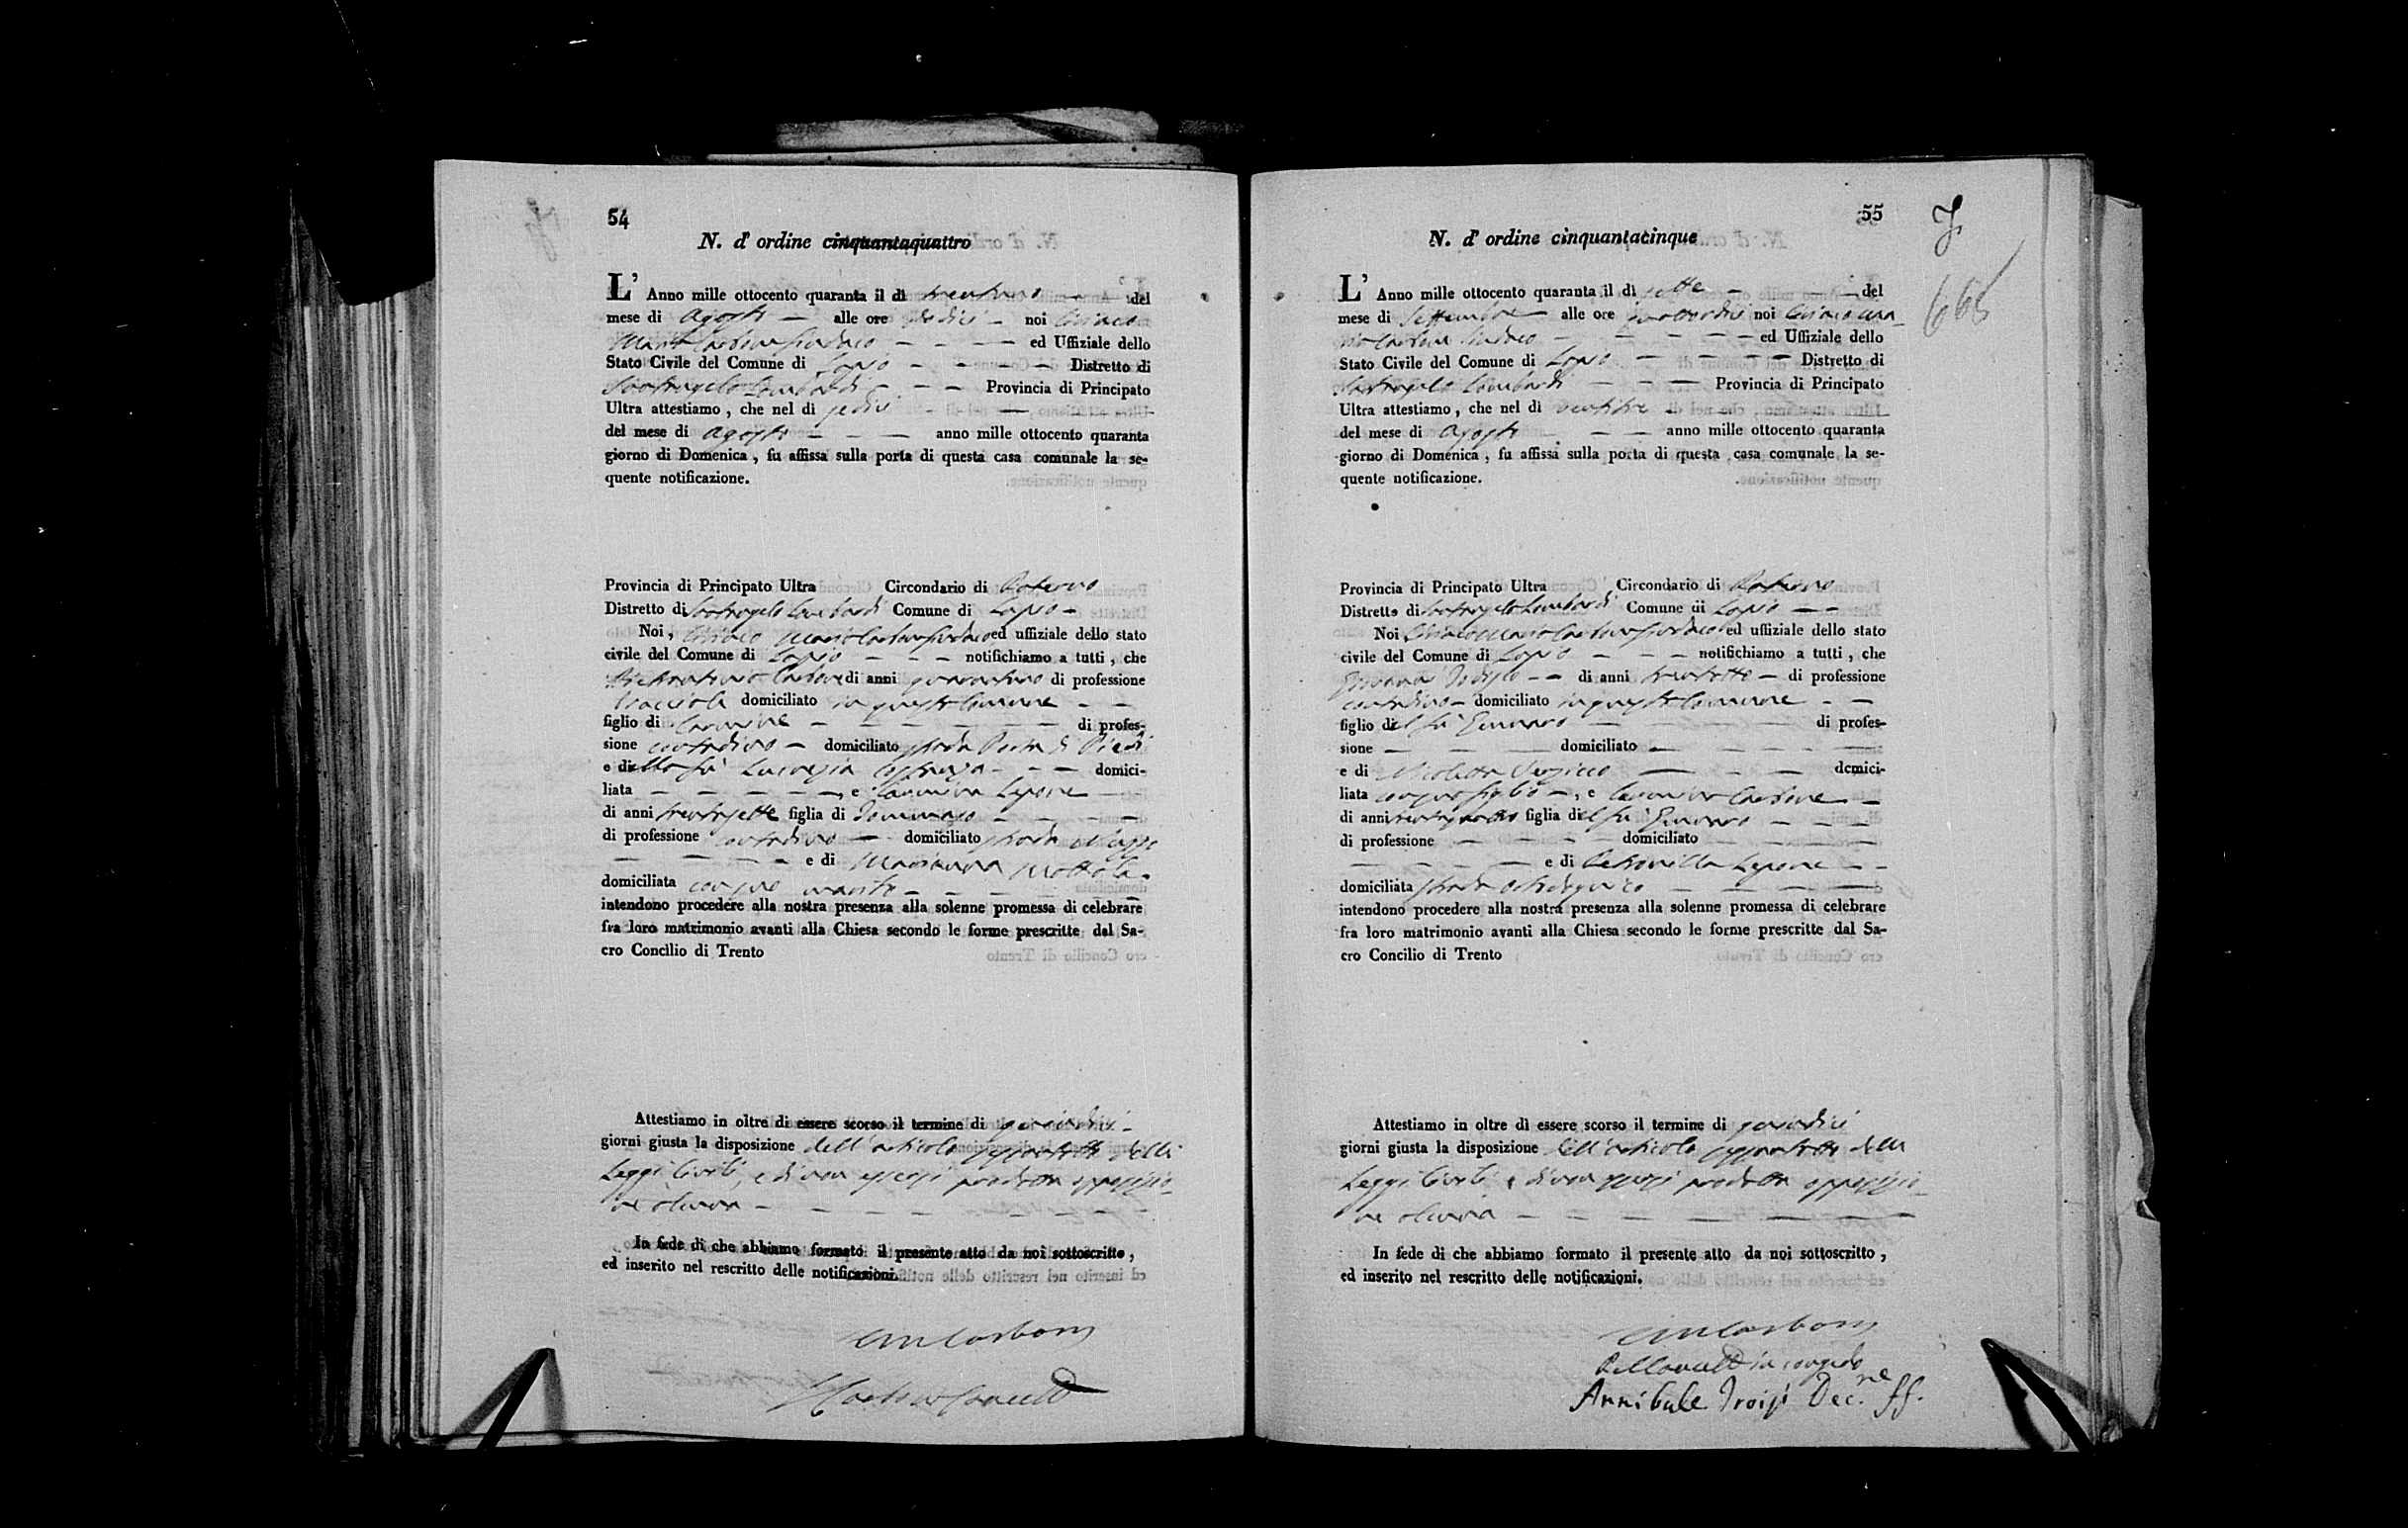 54
N. d' ordine cinquantaquattro
L' Anno mille ottocento quaranta il dì trentuno del
mese di Agosto alle ore sedici noi Ciriaco
Maria Carbone Sindaco ed Uffiziale dello
Stato Civile del Comune di Lapio Distretto di
Santangelo Lombardi Provincia di Principato
Ultra attestiamo, che nel dì sedici
del mese di Agosto anno mille ottocento quaranta
giorno di Domenica, fu affissa sulla porta di questa casa comunale la se-
quente notificazione.
Provincia di Principato Ultra Circondario di Paterno
Distretto di Santangelo Lombardi Comune di Lapio
Noi, Ciriaco Maria Carbone Sindaco ed uffiziale dello stato
civile del Comune di Lapio notifichiamo a tutti, che
Carbone di anni quarantuno di professione
domiciliato in questo Comune
figlio di Carmine di profes-
sione contadino domiciliato strada Piedi
e della fù Lucrezia Costanza domici-
liata e Carmina Lepore
di anni trentasette figlia di Tommaso
di professione contadino domiciliato strada
e di Marianna Mottola
domiciliata con suo marito
intendono procedere alla nostra presenza alla solenne promessa di celebrare
fra loro matrimonio avanti alla Chiesa secondo le forme prescritte dal Sa-
cro Concilio di Trento
Attestiamo in oltre di essere scorso il termine di quindici
giorni giusta la disposizione dell'articolo settantotto delle
Leggi Civili, e di non essersi prodotta opposizio-
ne alcuna
In fede di che abbiamo formato il presente atto da noi sottoscritto,
ed inserito nel rescritto delle notificazioni.
CMCarbone
55
N. d' ordine cinquantacinque
L' Anno mille ottocento quaranta il dì sette del
mese di Settembre alle ore quattordici noi Ciriaco Ma-
ria Carbone Sindaco ed Uffiziale dello
Stato Civile del Comune di Lapio Distretto di
Santangelo Lombardi Provincia di Principato
Ultra attestiamo, che nel dì ventitre
del mese di Agosto anno mille ottocento quaranta
giorno di Domenica, fu affissa sulla porta di questa casa comunale la se-
quente notificazione.
Provincia di Principato Ultra Circondario di Paterno
Distretto di Santangelo Lombardi Comune di Lapio
Noi Ciriaco Maria Carbone Sindaco ed uffiziale dello stato
civile del Comune di Lapio notifichiamo a tutti, che
di anni trentotto di professione
contadino domiciliato in questo Comune
figlio del fù Gennaro di profes-
sione domiciliato
e di Nicoletta domici-
liata con suo figlio, e Carmina Carbone
di anni trentaquattro figlia del fù Gennaro
di professione domiciliato
e di Petronilla Lepore
domiciliata strada
intendono procedere alla nostra presenza alla solenne promessa di celebrare
fra loro matrimonio avanti alla Chiesa secondo le forme prescritte dal Sa-
cro Concilio di Trento
Attestiamo in oltre di essere scorso il termine di quindici
giorni giusta la disposizione dell'articolo settantotto delle
Leggi Civili e di non essersi prodotta opposizio-
ne alcuna
In fede di che abbiamo formato il presente atto da noi sottoscritto,
ed inserito nel rescritto delle notificazioni.
CMCarbone
in congedo
Annibale Troisi Dec.ne ff.